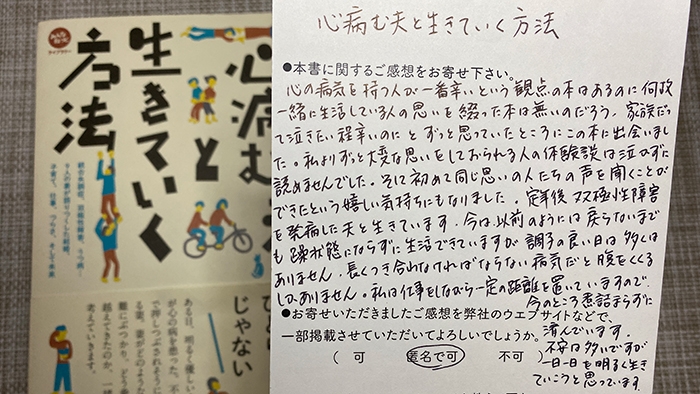 みんなねっと
ライブラリー
心病む夫と
生きていく
方法
統合失調症、双極性障害、うつ病…
9人の妻が語りつくした結婚、
子育て、仕事、つらさ、そして未来
じゃない
ある日、明るく優しい
が心の病を患った。
で押しつぶされそうに
る妻。妻がどのよう
難にぶつかり、どう
越えてきたのか、一緒
考えていきます。
心病む夫と生きていく方法
●本書に関するご感想をお寄せ下さい。
心の病気を持つ人が一番辛いという観点の本はあるのに何故
一緒に生活している人の思いを綴った本は無いのだろう、家族だっ
て泣きたい程辛いのに とずっと思っていたところにこの本に出会いまし
た。私よりずっと大変な思いをしておられる人の体験談は泣かずに
読めませんでした。そして初めて同じ思いの人たちの声を聞くことが
できたという嬉しい気持ちにもなりました。定年後 双極性障害
を発病した夫と生きています。今は以前のようには戻らないまで
も躁状態にならずに生活できていますが調子の良い日は多くは
ありません。長くつき合わなければならない病気だと腹をくくる
しかありません。私は仕事をしながら一定の距離を置いていますので、
今のところ煮詰まらずに
済んでいます。
不安は多いですが
一日一日を明るく生き
ていこうと思っています。
●お寄せいただきましたご感想を弊社のウェブサイトなどで、
一部掲載させていただいてよろしいでしょうか。
( 可 匿名で可 不可 )